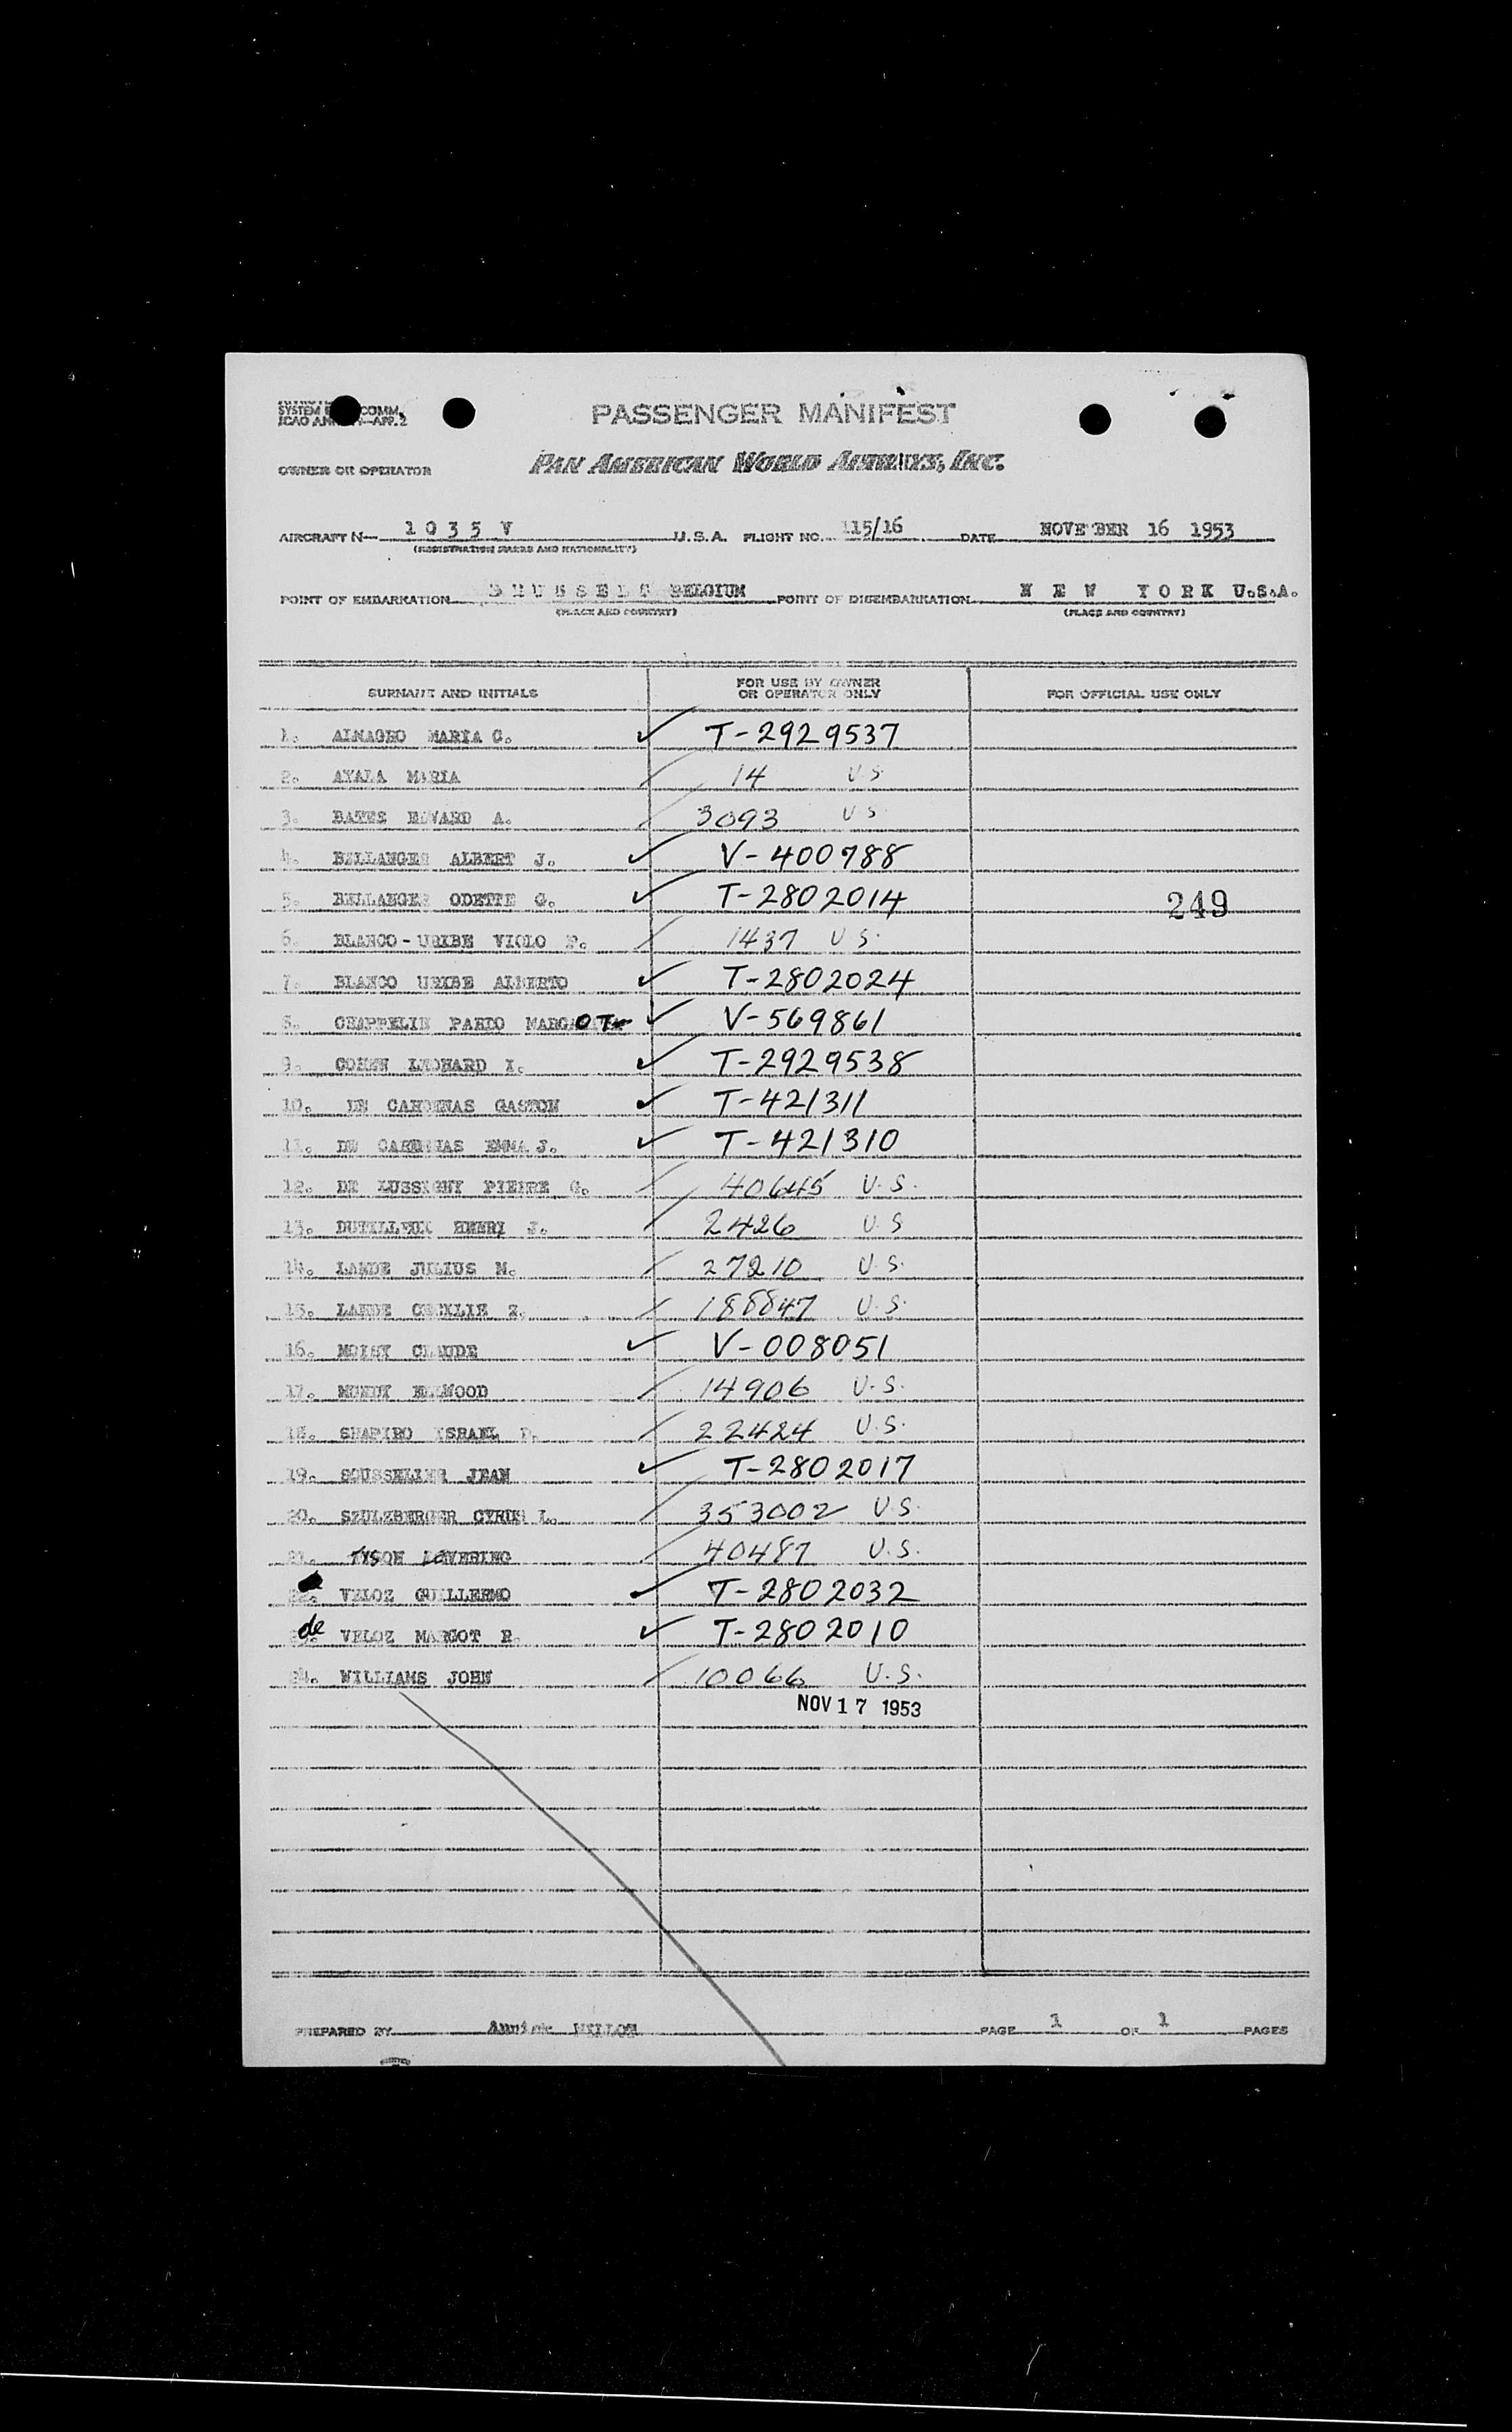 SYSTEM COMM.
ICAO ANN APP. 2
PASSENGER MANIFEST
OWNER OR OPERATOR
PAN AMERICAN WORLD AIRWAYS, INC.
AIRCRAFT N— 1 0 3 5 V U.S.A. FLIGHT NO. 115/16 DATE NOVE BER 16 1953
(REGISTRATION MARKS AND NATIONALITY)
POINT OF EMBARKATION BELGIUM POINT OF DISEMBARKATION N E W Y O R K U.S.A.
(PLACE AND COUNTRY) (PLACE AND COUNTRY)
SURNAME AND INITIALS FOR USE BY OWNER OR OPERATOR ONLY FOR OFFICIAL USE ONLY
1. MARIA C. ✓ T-2929537
2. AYALA MARIA / 14 U.S.
3. BATES EDWARD A. / 3093 U S
4. BELLANGER ALBERT J. ✓ V-400788
5. BELLANGER ODETTE G. ✓ T-2802014 249
6. BLANCO-URIBE VIOLO P. / 1437 U S.
7. BLANCO URIBE ALBERTO ✓ T-2802024
8. CHAPPELIN PARDO MARGOT ✓ V-569861
9. COHEN LEONARD I. ✓ T-2929538
10. DE CARDENAS GASTON ✓ T-421311
11. DE CARDENAS EMMA J. ✓ T-421310
12. DE LUSSIGNY PIERRE G. / 40645 U.S.
13. DUTILLEUX HENRI J. / 2426 U.S
14. LANDE JULIUS M. / 27210 U.S.
15. LANDE CECILIE Z. / 188847 U.S.
16. MOISY CLAUDE ✓ V-008051
17. MUNDY ELWOOD / 14906 U.S.
18. SHAPIRO ISRAEL / 22424 U.S.
19. SOUSSELIER JEAN ✓ T-2802017
20. SZULZBERGER CYRUS L. / 353002 U.S.
21. TYSON LOVERING / 40487 U.S.
22. VELOZ GUILLERMO ✓ T-2802032
23. de VELOZ MARGOT R. ✓ T-2802010
24. WILLIAMS JOHN / 10066 U.S.
NOV 17 1953
PREPARED BY Annick PAGE 1 OF 1 PAGES